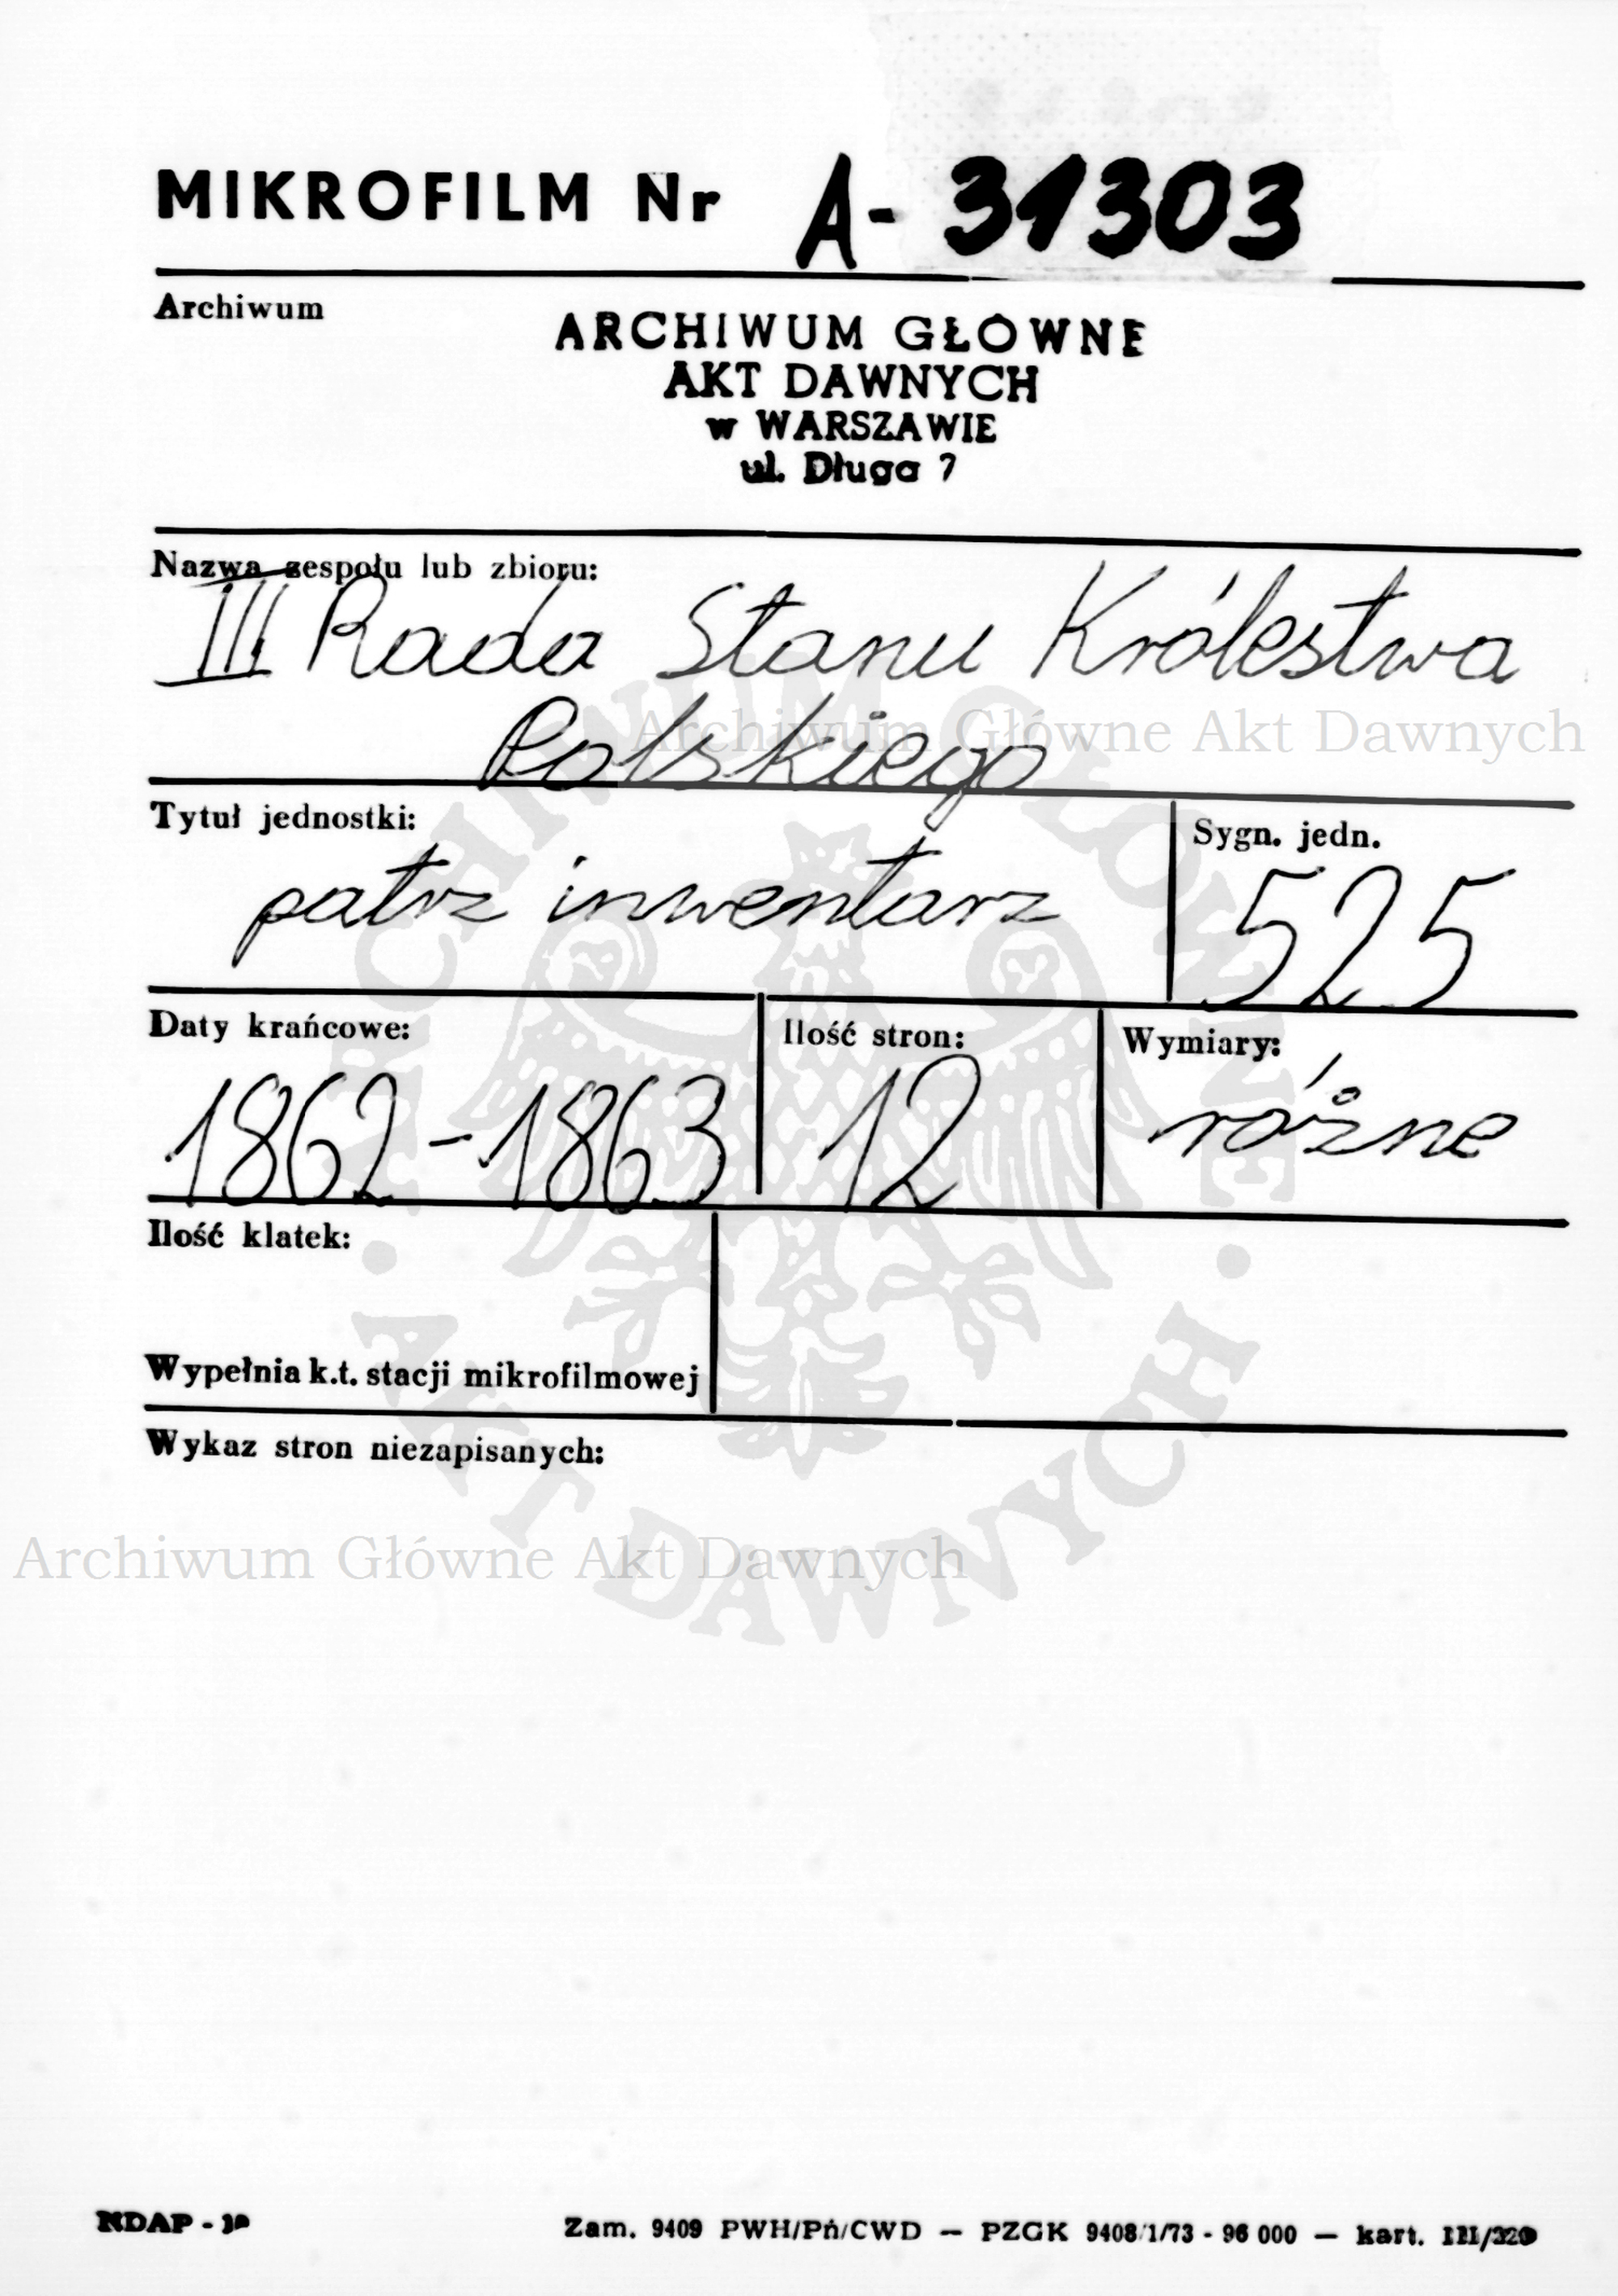 MIKROFILM Nr A- 31303
Archiwum
ARCHIWUM GŁÓWNE
AKT DAWNYCH
w WARSZAWIE
ul. Długa 7
Nazwa zespołu lub zbioru:
III Rada Stanu Królestwa
Polskiego
Archiwum Główne Akt Dawnych
Tytuł jednostki:
patrz inwentarz
Sygn. jedn.
525
Daty krańcowe:
1862-1863
Ilość stron:
12
Wymiary:
różne
Ilość klatek:
Wypełnia k.t. stacji mikrofilmowej
Wykaz stron niezapisanych:
ARCHIWUM GŁÓWNE · AKT DAWNYCH ·
Archiwum Główne Akt Dawnych
NDAP -
Zam. 9409 PWH/Pń/CWD — PZGK 9408/1/73 - 96 000 — kart.